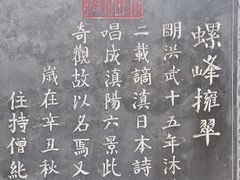 螺峰擁翠
明洪武十五年沐
二載謫滇日本詩
唱成滇陽六景此
奇觀故以名焉又
歲在辛丑秋
住持僧